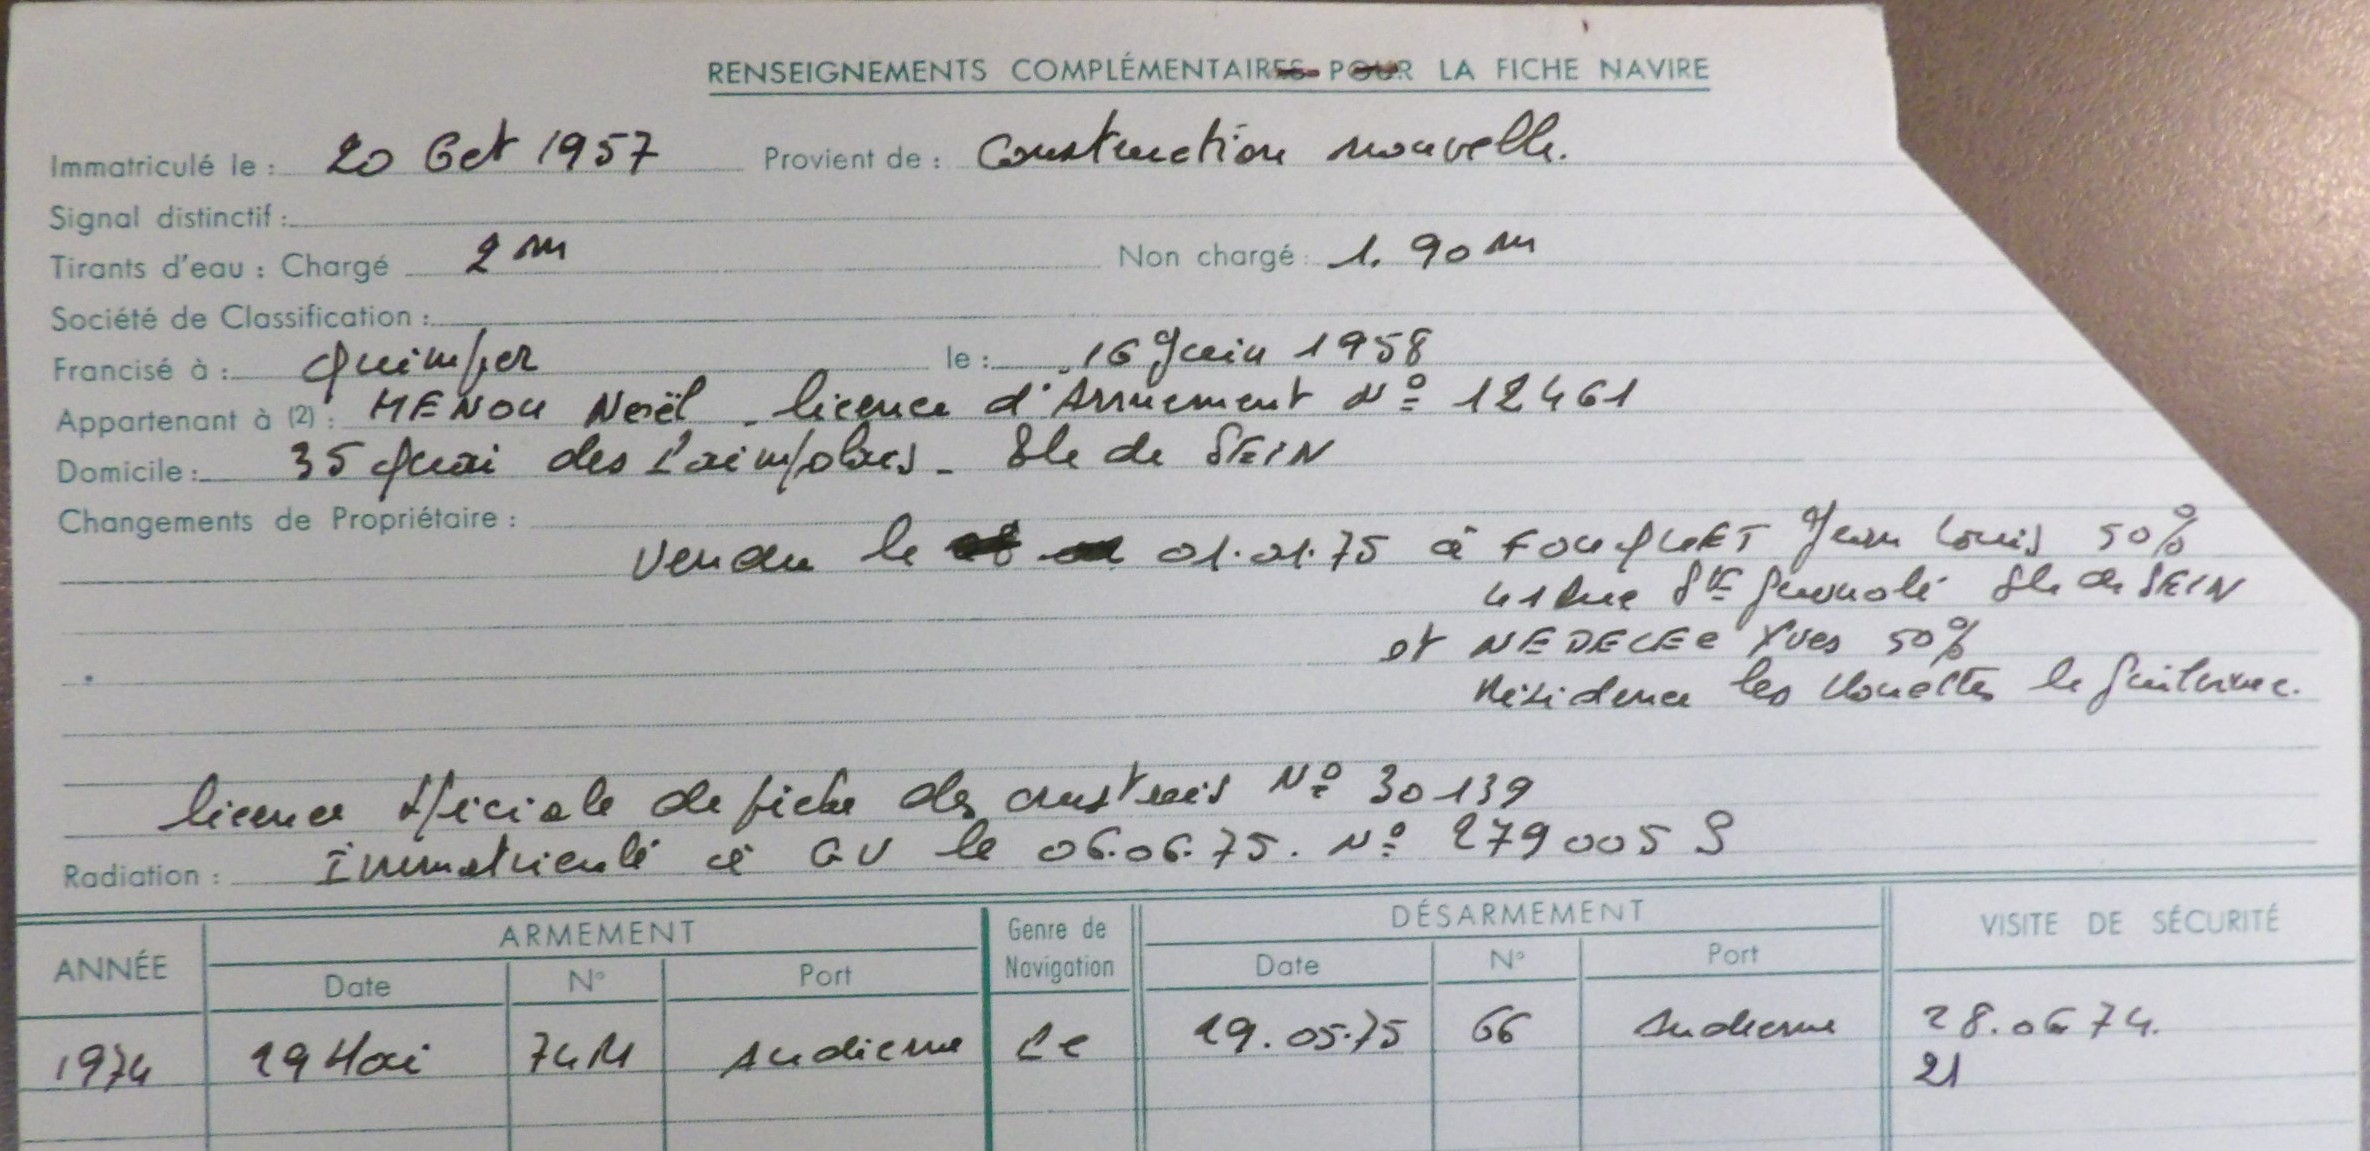 RENSEIGNEMENTS COMPLÉMENTAIRES POUR LA FICHE NAVIRE
Immatriculé le : 20 Oct 1957 Provient de : Construction nouvelle.
Signal distinctif :
Tirants d'eau : Chargé 2 m Non chargé : 1.90 m
Société de Classification :
Francisé à : Quimper le : 16 Juin 1958
Appartenant à (2) : MENOU Noël - licence d'Armement N° 12461
Domicile : 35 quai des Paimpolais - Ile de SEIN
Changements de Propriétaire :
Vendu le 01.01.75 à FOUQUET Jean Louis 50%
41 rue St Guénolé Ile de SEIN
et NEDELEC Yves 50%
Résidence les Mouettes le Guilvinec.
licence spéciale de pêche des crustacés N° 30139
Radiation : Immatriculé à GV le 06.06.75. N° 279005 S
ANNÉE ARMEMENT Genre de Navigation DÉSARMEMENT VISITE DE SÉCURITÉ
Date N° Port Date N° Port
1974 29 Mai 74M Audierne Pe 29.05.75 66 Audierne 28.06 74.
21